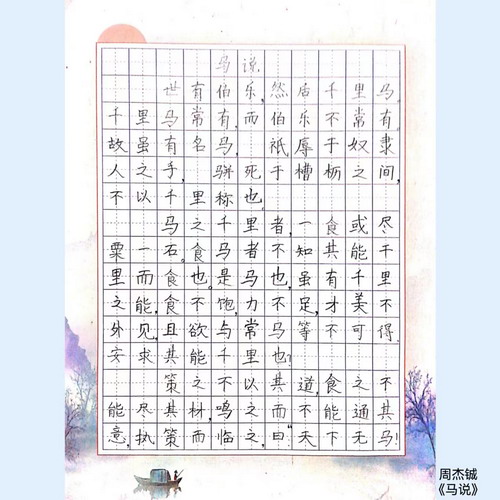 马说
世有伯乐,然后千里马.
千里马常有,而伯乐不常有.
故虽有名马,祇辱于奴隶
人之手,骈死于槽枥之间,
不以千里称也.
马之千里者,一食或尽
粟一石。食马者不知其能千
里而食也。是马也,虽有千里
之能,食不饱,力不足,才美不
外见,且欲与常马等不可得,
安求其能千里也?
策之不以其道,食之不
能尽其材,鸣之而不能通其
意,执策而临之,曰:“天下无马!
周杰铖
《马说》